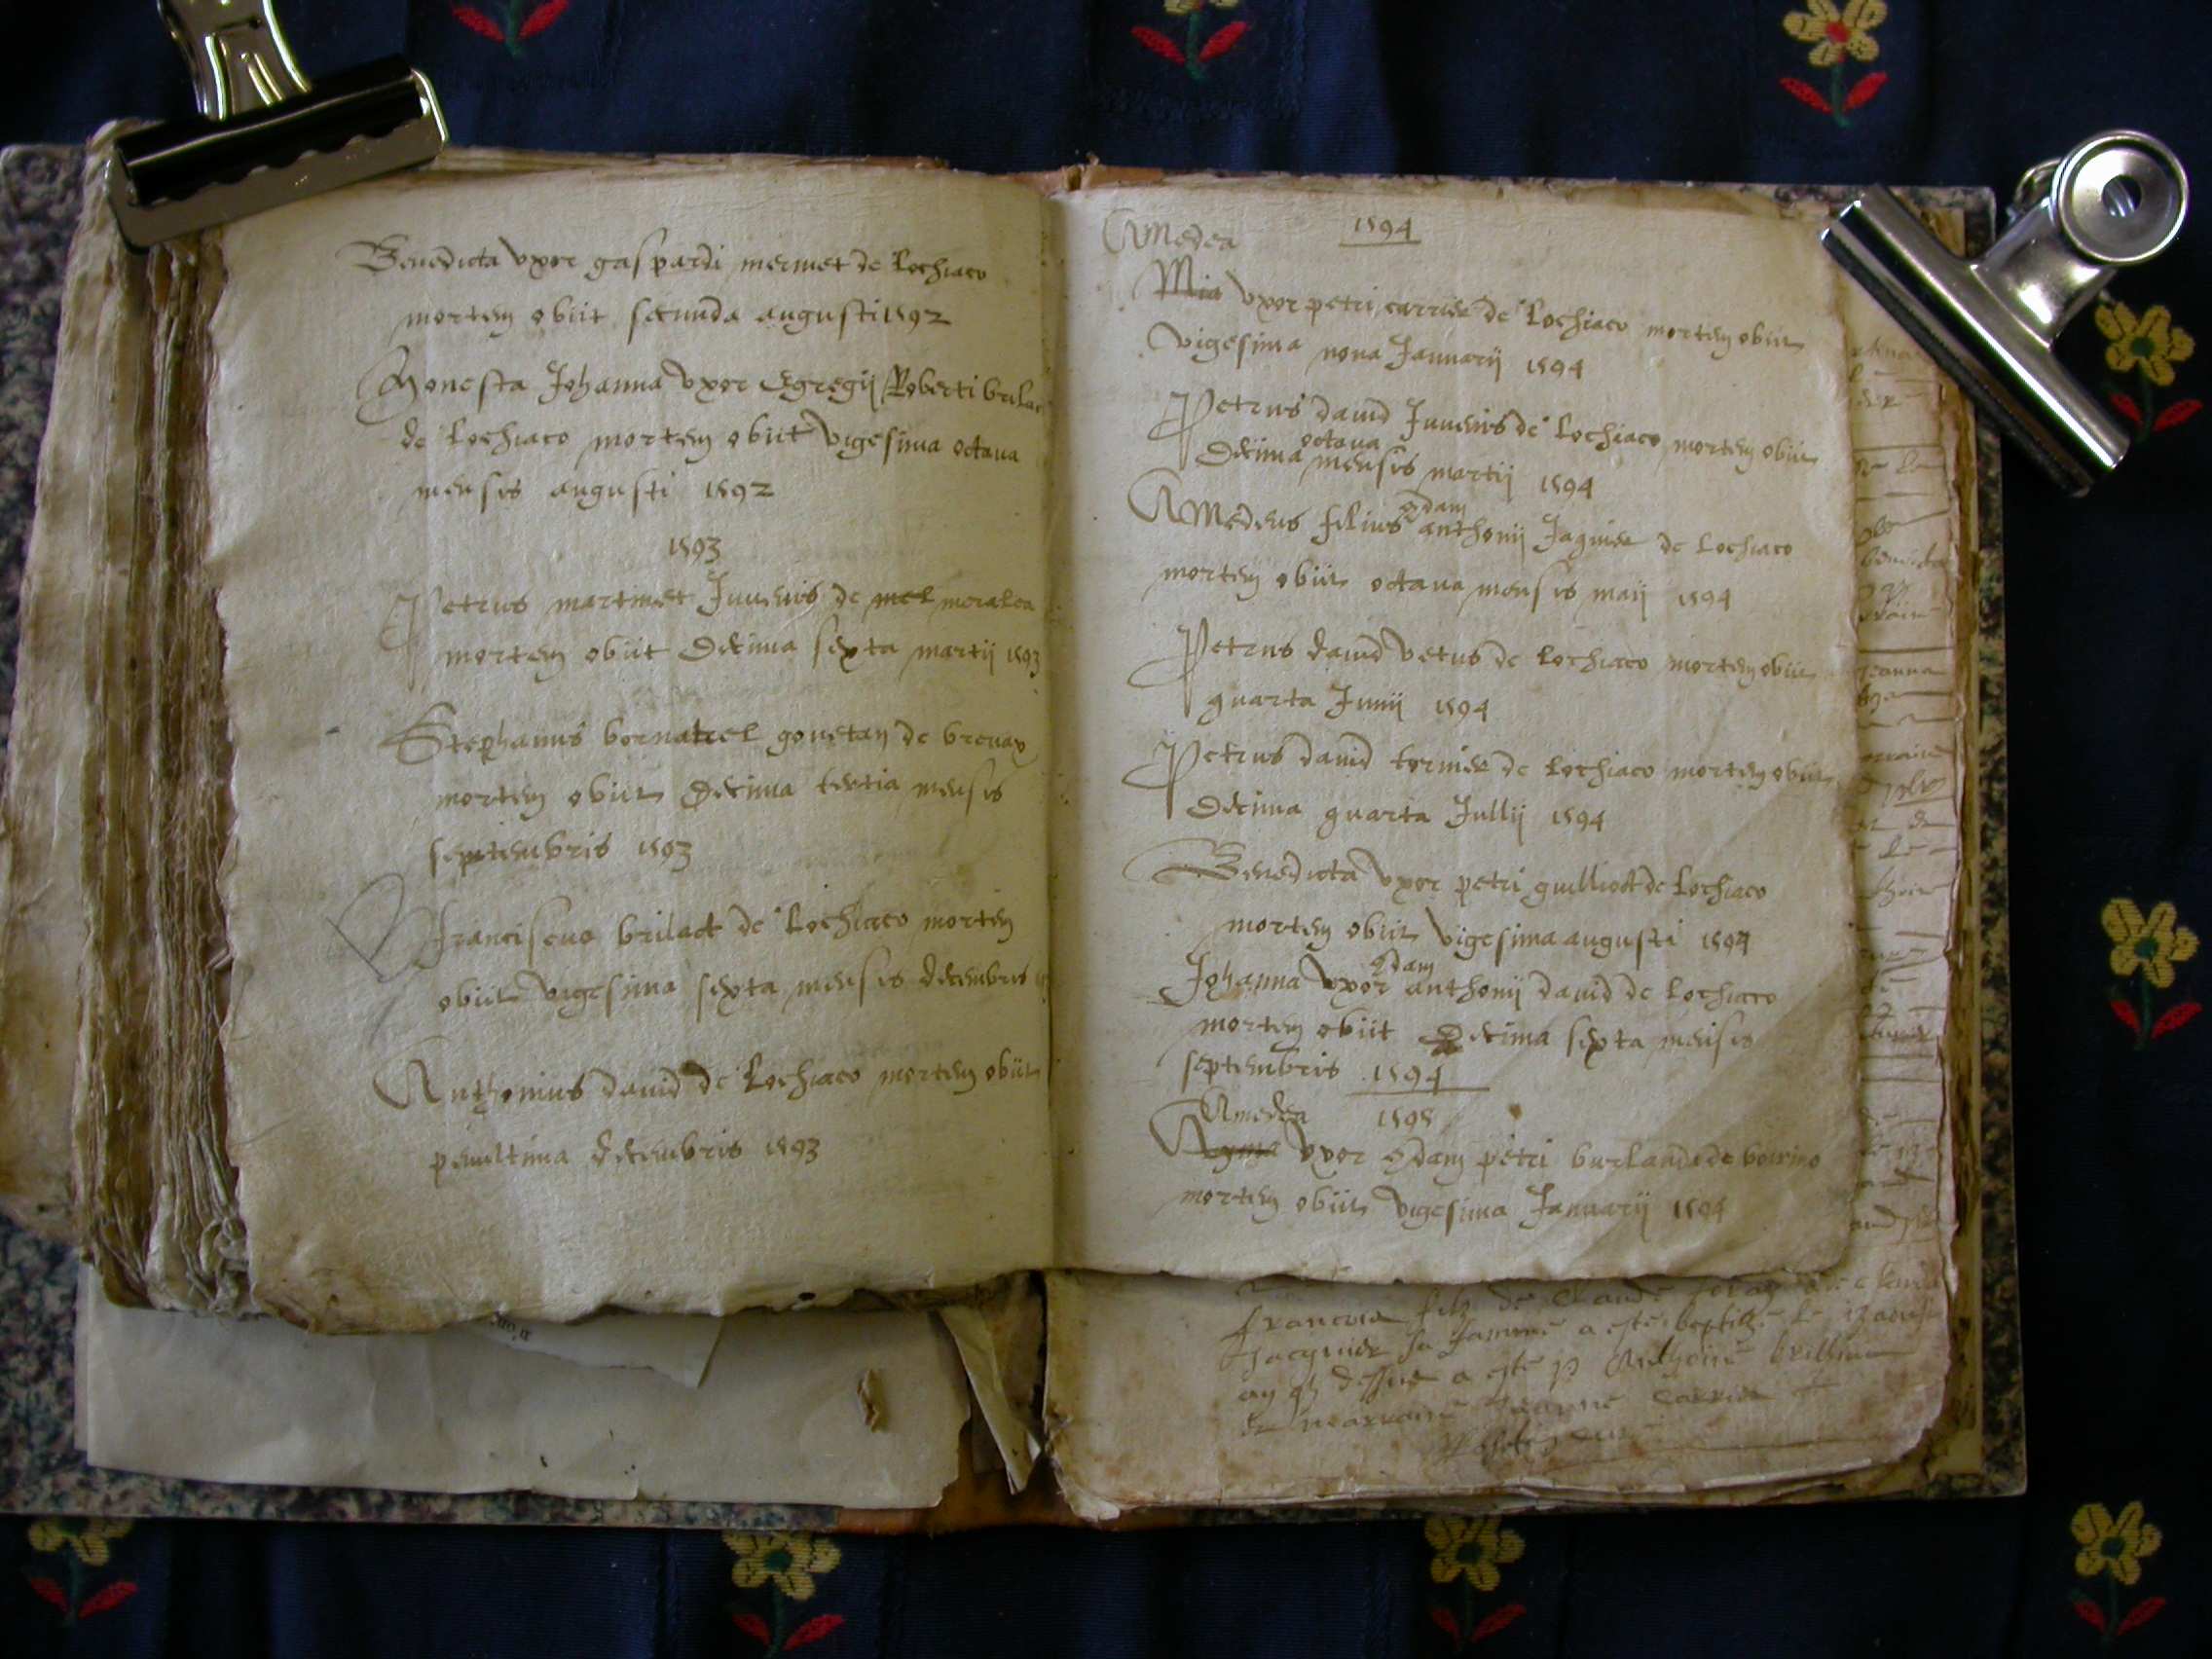 Benedicta vxor gaspardi mermet de Lochiaco
mortem obiit secunda augusti 1592
Honesta Johanna vxor Egregij Roberti brilat
de Lochiaco mortem obiit vigesima octaua
mensis augusti 1592
1593
Petrus martinet Juuenis de mel meralea
mortem obiit Decima sexta martij 1593
Stephanus bornatrel gouetan de brenax
mortem obiit Decima tertia mensis
septembris 1593
franciscus brilact de Lochiaco mortem
obiit vigesima sexta mensis decembris
Anthonius dauid de Lochiaco mortem obiit
penultima decembris 1593
1594
Amedea
Mia vxor petri carrier de Lochiaco mortem obiit
vigesima nona Januarij 1594
Petrus dauid Juuenis de Lochiaco mortem obiit
octaua
Decima mensis martij 1594
qdam
Amedeus filius anthonij Jaquier de Lochiaco
mortem obiit octaua mensis maij 1594
Petrus dauid vetus de Lochiaco mortem obiit
quarta Junij 1594
Petrus dauid tornier de Lochiaco mortem obiit
Decima quarta Jullij 1594
Benedicta vxor petri guilliodt de Lochiaco
mortem obiit vigesima augusti 1594
qdam
Johanna vxor anthonij dauid de Lochiaco
mortem obiit Decima sexta mensis
septembris 1594
Amedea 1595
vxor qdam petri burlandi de boirino
mortem obiit vigesima Januarij 1594
francois filz de Claude
Jacquier sa famme a este baptize le
a este p Anthoine
marraine Carrier